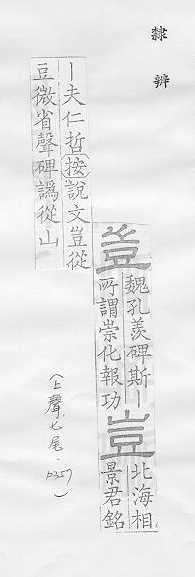 隸辨
豈 魏孔羨碑斯丨
所謂崇化報功
豈 北海相
景君銘
丨夫仁哲按說文豈從
豆微省聲碑譌從山
(上聲.七尾.p357)